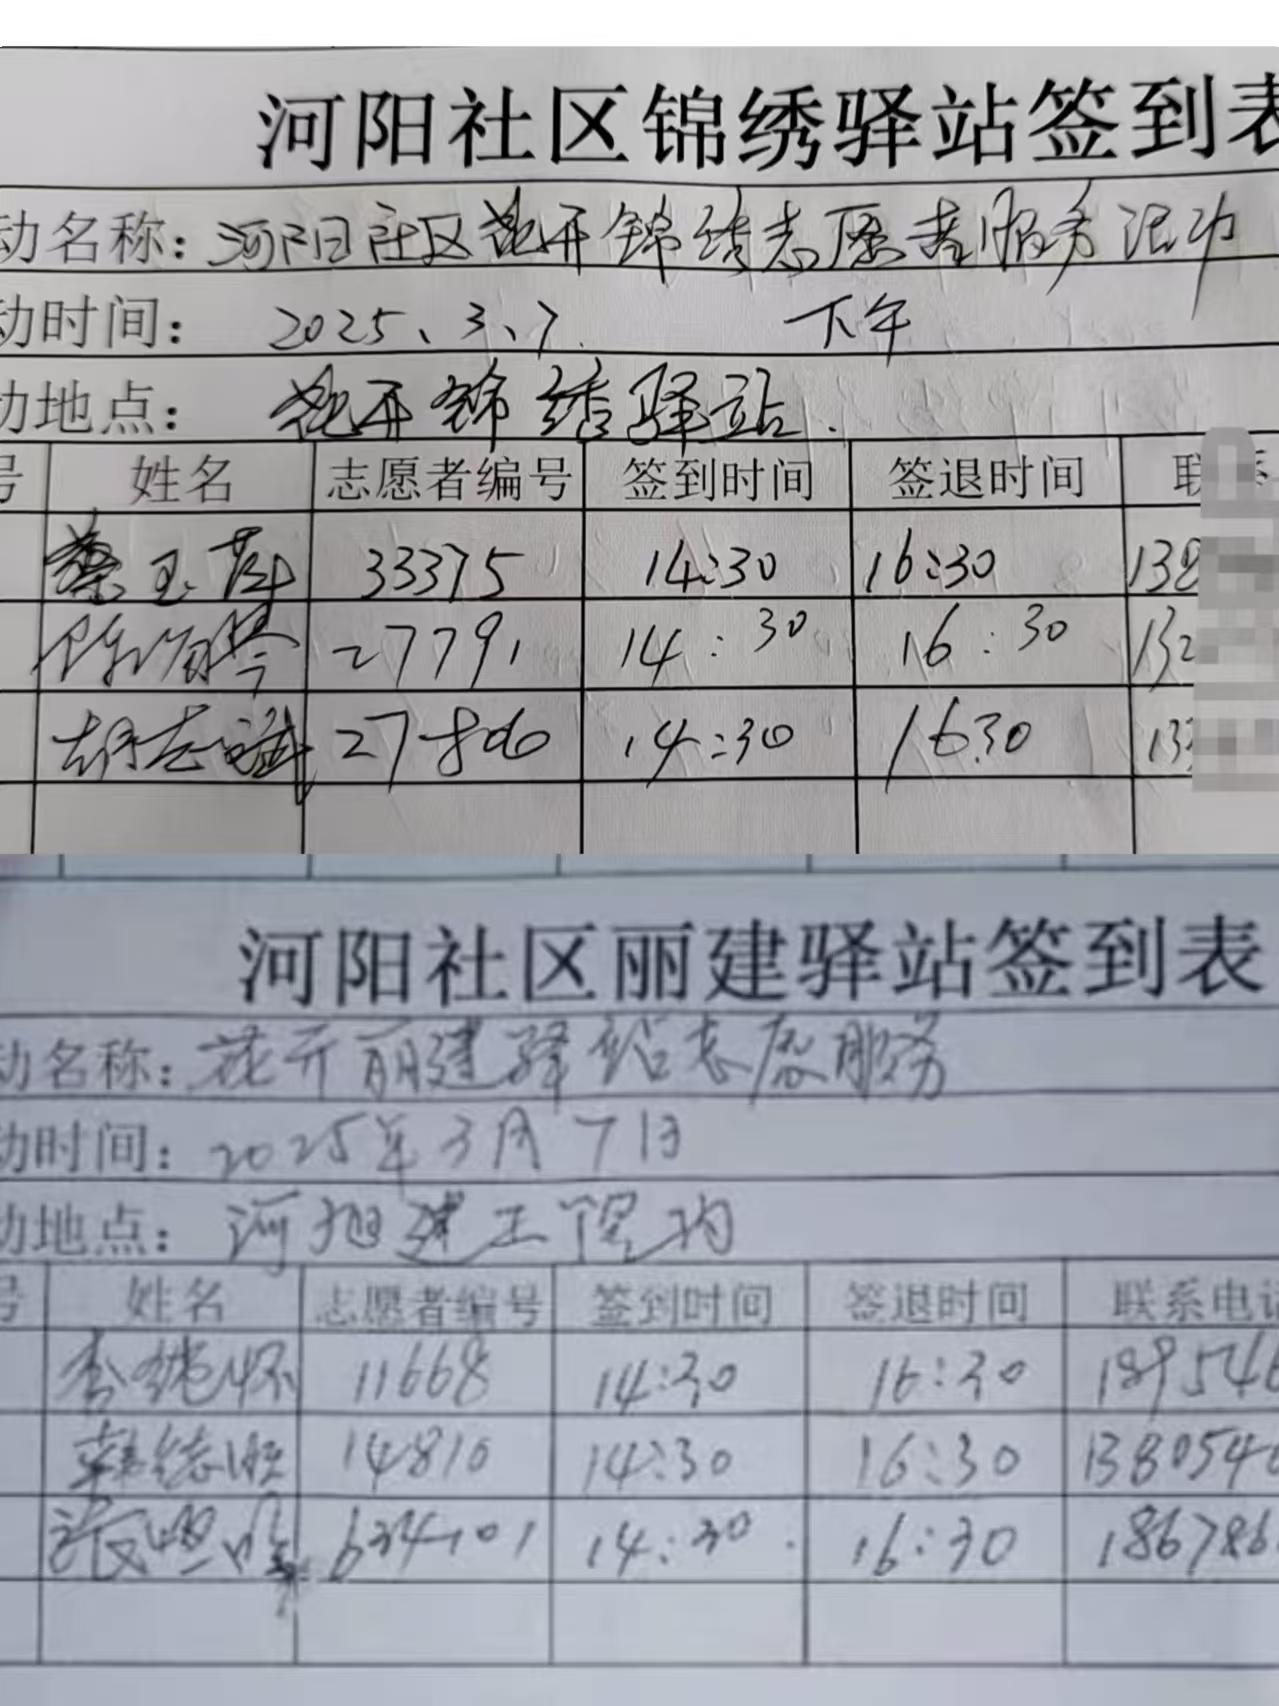 河阳社区锦绣驿站签到表
动名称：河阳社区花开锦绣志愿者服务活动
动时间：2025、3、7. 下午
动地点：花开锦绣驿站.
号 姓名 志愿者编号 签到时间 签退时间 联系
蔡玉萍 33375 14:30 16:30 138
27791 14:30 16:30 132
胡志斌 27806 14:30 1630 133
河阳社区丽建驿站签到表
动名称：花开丽建驿站志愿服务
动时间：2025年3月7日
动地点：河阳建工院内
号 姓名 志愿者编号 签到时间 签退时间 联系电话
李继怀 11668 14:30 16:30 189546
韩德顺 14810 14:30 16:30 1380546
张 634101 14:30 16:30 186786